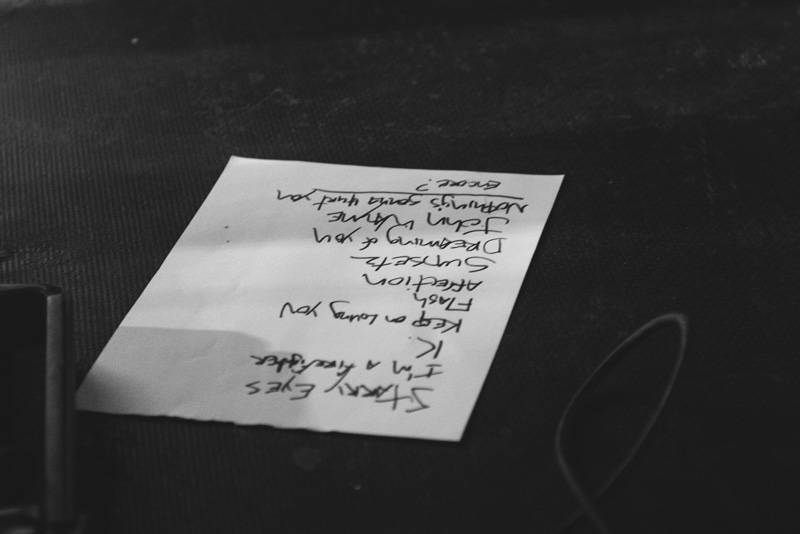 Starry Eyes
I'm a firefighter
K.
Keep on loving you
Flash
Affection
Sunsetz
Dreaming of you
John Wayne
Nothing's gonna hurt you
Encore?